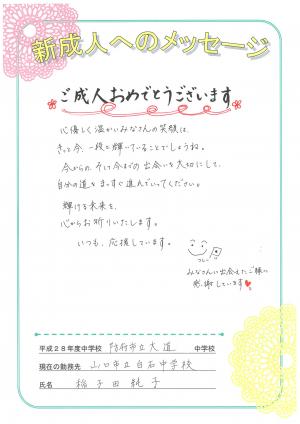 新成人へのメッセージ
ご成人おめでとうございます
心優しく温かいみなさんの笑顔は、
きっと今、一段と輝いていることでしょうね。
今からの、そして今までの出会いを大切にして、
自分の道をまっすぐ進んでいってください。
輝ける未来を、
心からお祈りいたします。
いつも、応援しています。
みなさんに出会えたご縁に
感謝しています
平成28年度中学校 防府市立大道 中学校
現在の勤務先 山口市立白石中学校
氏名 田純子